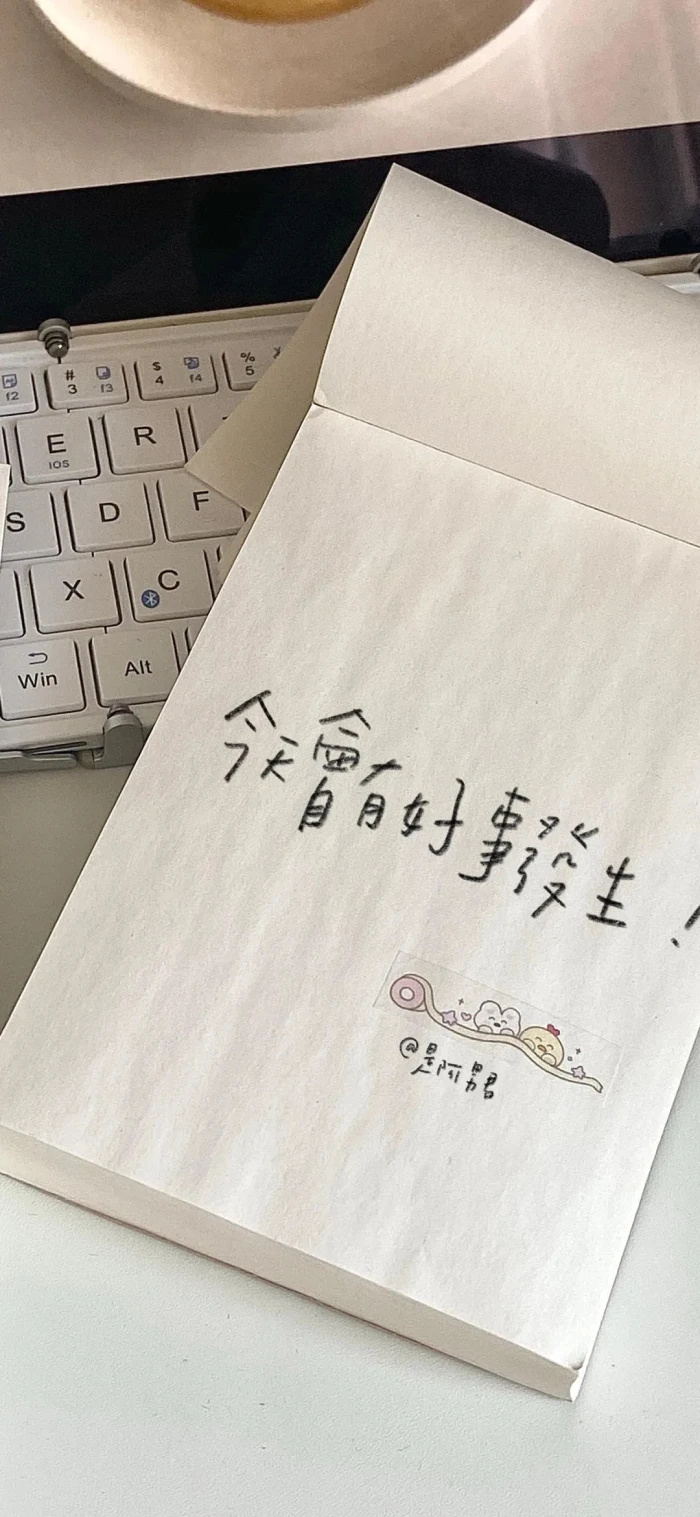 # $ %
3 4 5
f2 f3 f4
E R
IOS
S D F
X C
Win Alt
今天會有好事發生!
@是阿男君